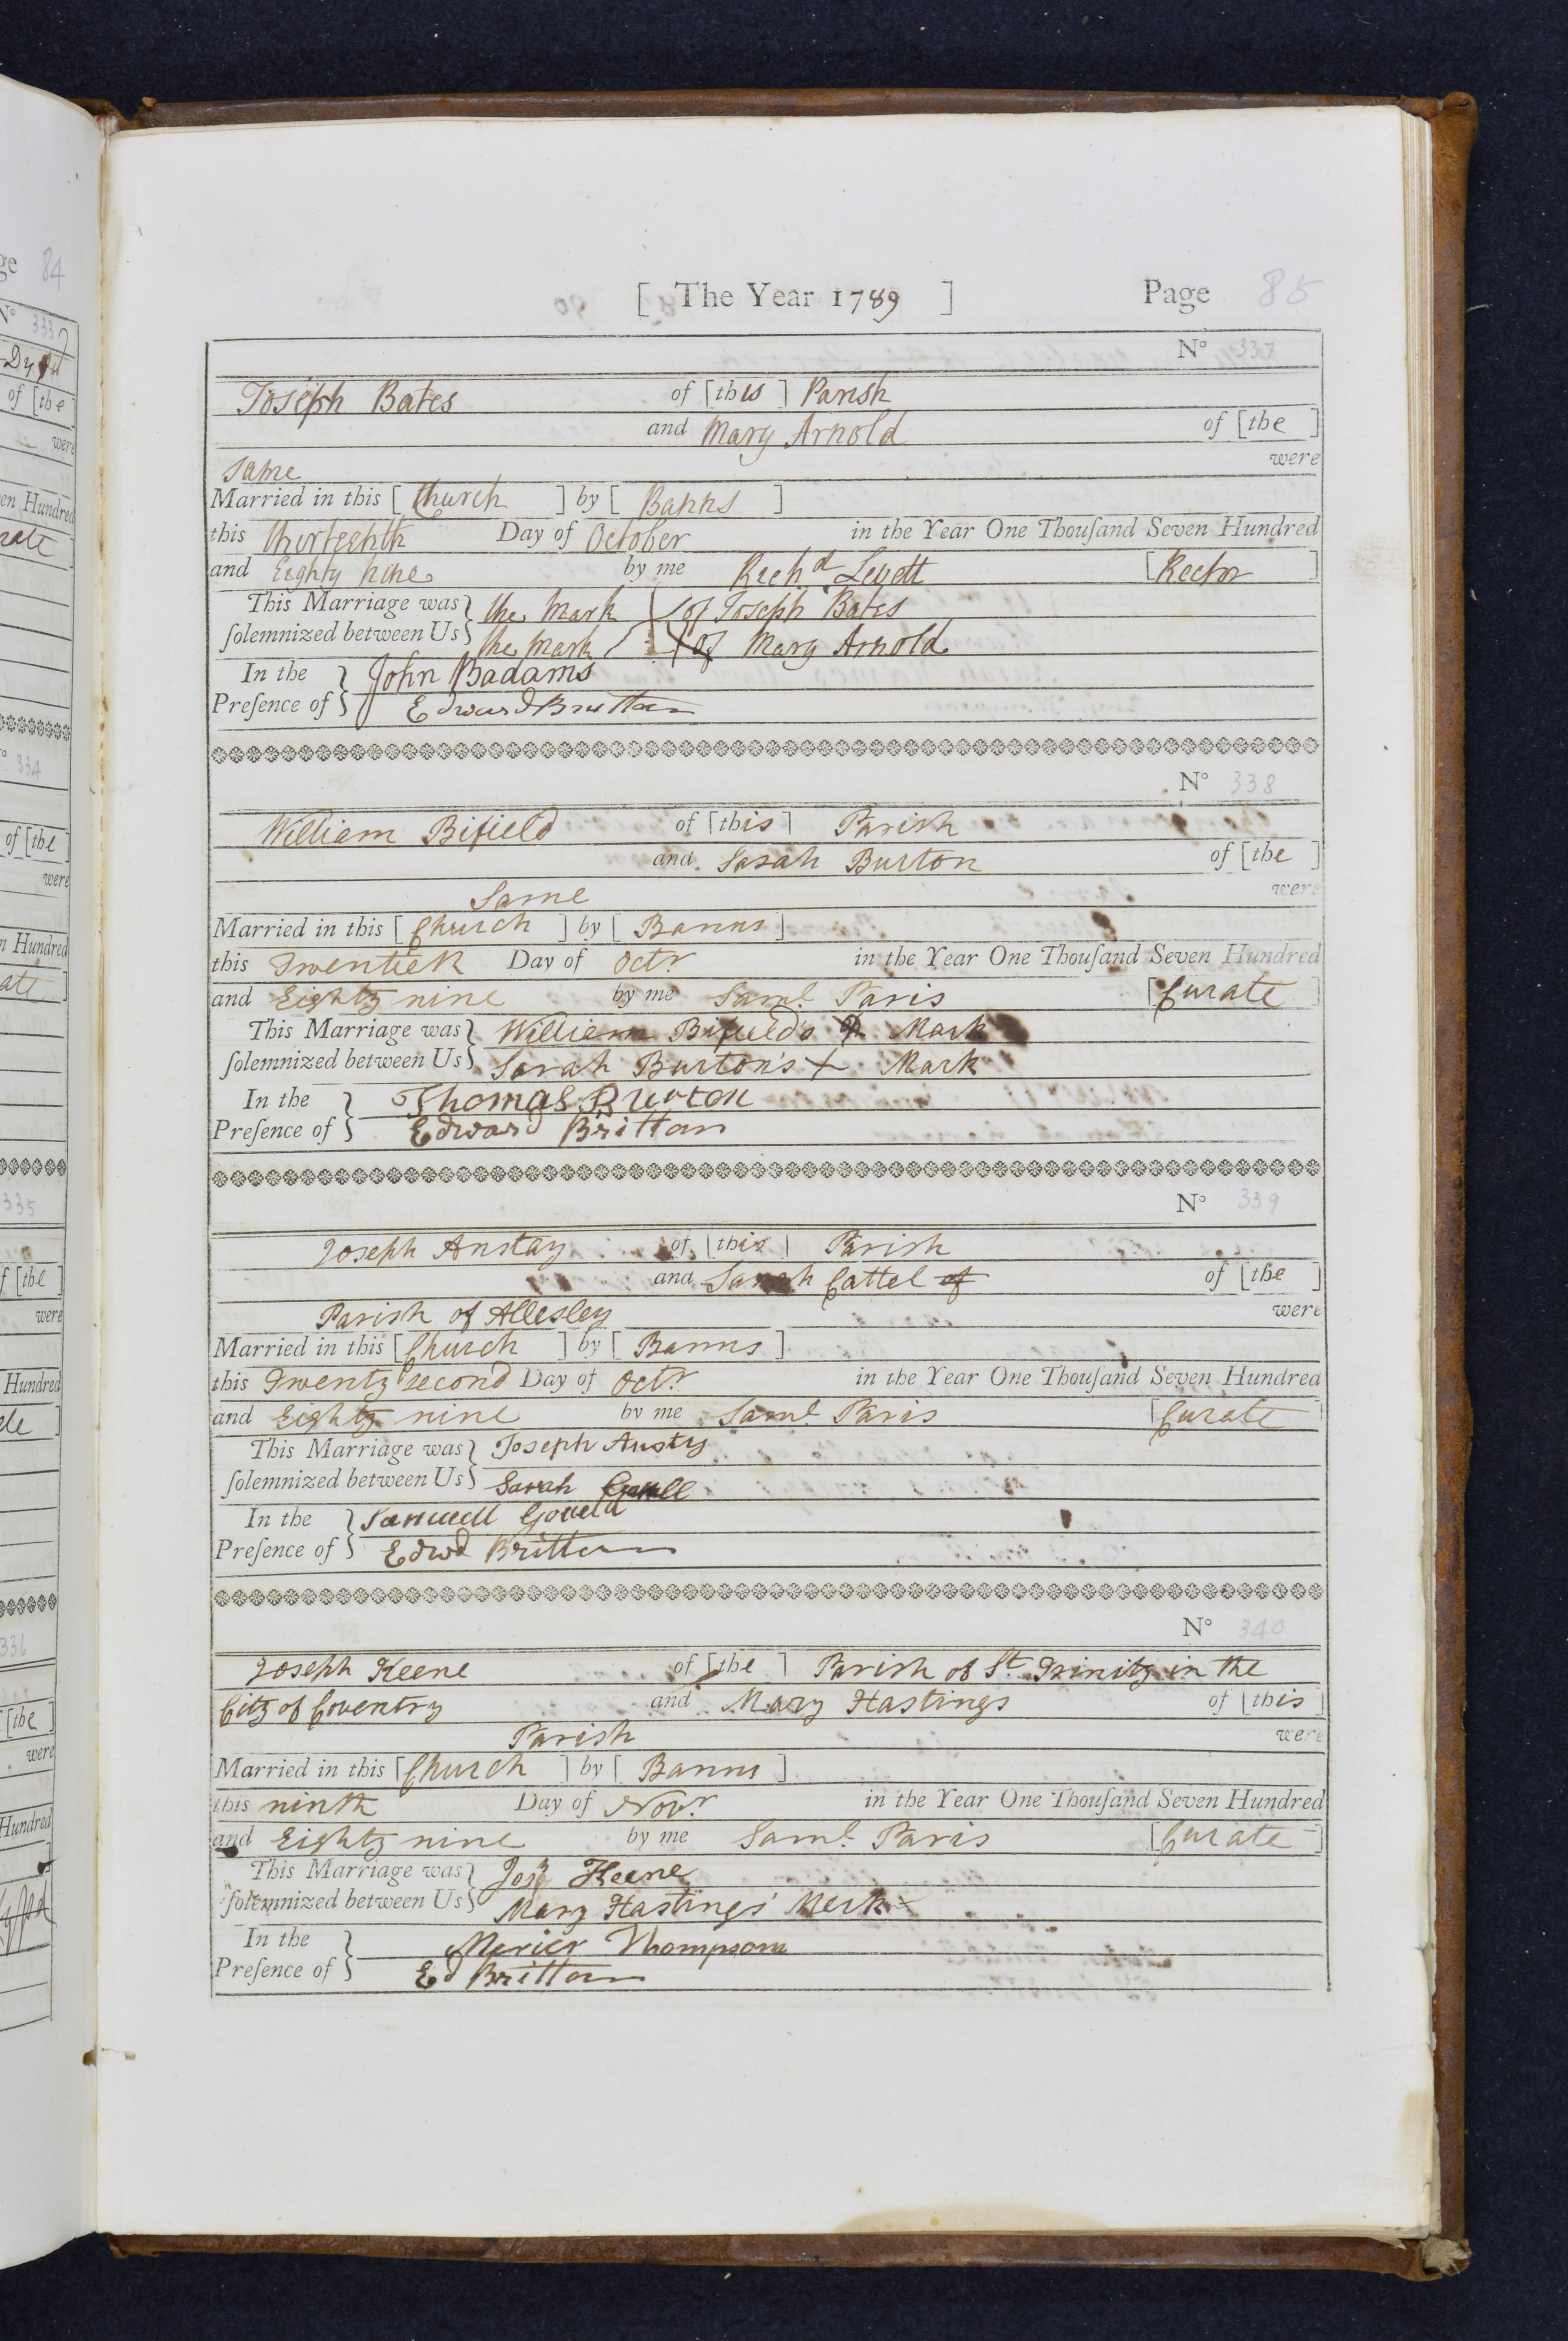 [ The Year 1789 ] Page 85
N° 337
Joseph Bates of [this] Parish
and Mary Arnold of [the ]
same were
Married in this [ Church ] by [ Banns ]
this thirteenth Day of October in the Year One Thouſand Seven Hundred
and Eighty nine by me Richd Levett [Rector ]
This Marriage was } the Mark of Joseph Bates
ſolemnized between Us } the Mark X of Mary Arnold
In the } John Badams
Preſence of } Edward Brittan
N° 338
William Bifield of [this] Parish
and Sarah Burton of [the ]
Same were
Married in this [ Church ] by [ Banns ]
this Twentieth Day of Octr in the Year One Thouſand Seven Hundred
and Eighty nine by me Saml Paris [Curate ]
This Marriage was } William Bifield's Mark
ſolemnized between Us } Sarah Burton's + Mark
In the } Thomas Burton
Preſence of } Edward Brittan
N° 339
Joseph Anstay of [this] Parish
and Sarah Cattel of of [the ]
Parish of Allesley were
Married in this [ Church ] by [ Banns ]
this Twenty second Day of Octr in the Year One Thouſand Seven Hundred
and Eighty nine by me Saml Paris [Curate ]
This Marriage was } Joseph Austy
ſolemnized between Us } Sarah
In the } Samuell Goueld
Preſence of } Edwd Brittan
N° 340
Joseph Keene of [the ] Parish of St Trinity in the
City of Coventry and Mary Hastings of [this
Parish were
Married in this [ Church ] by [ Banns ]
this ninth Day of Novr in the Year One Thouſand Seven Hundred
and Eighty nine by me Saml Paris [Curate ]
This Marriage was } Josh Keene
ſolemnized between Us } Mary Hastings' Mark +
In the } Thompson
Preſence of } Ed Brittan